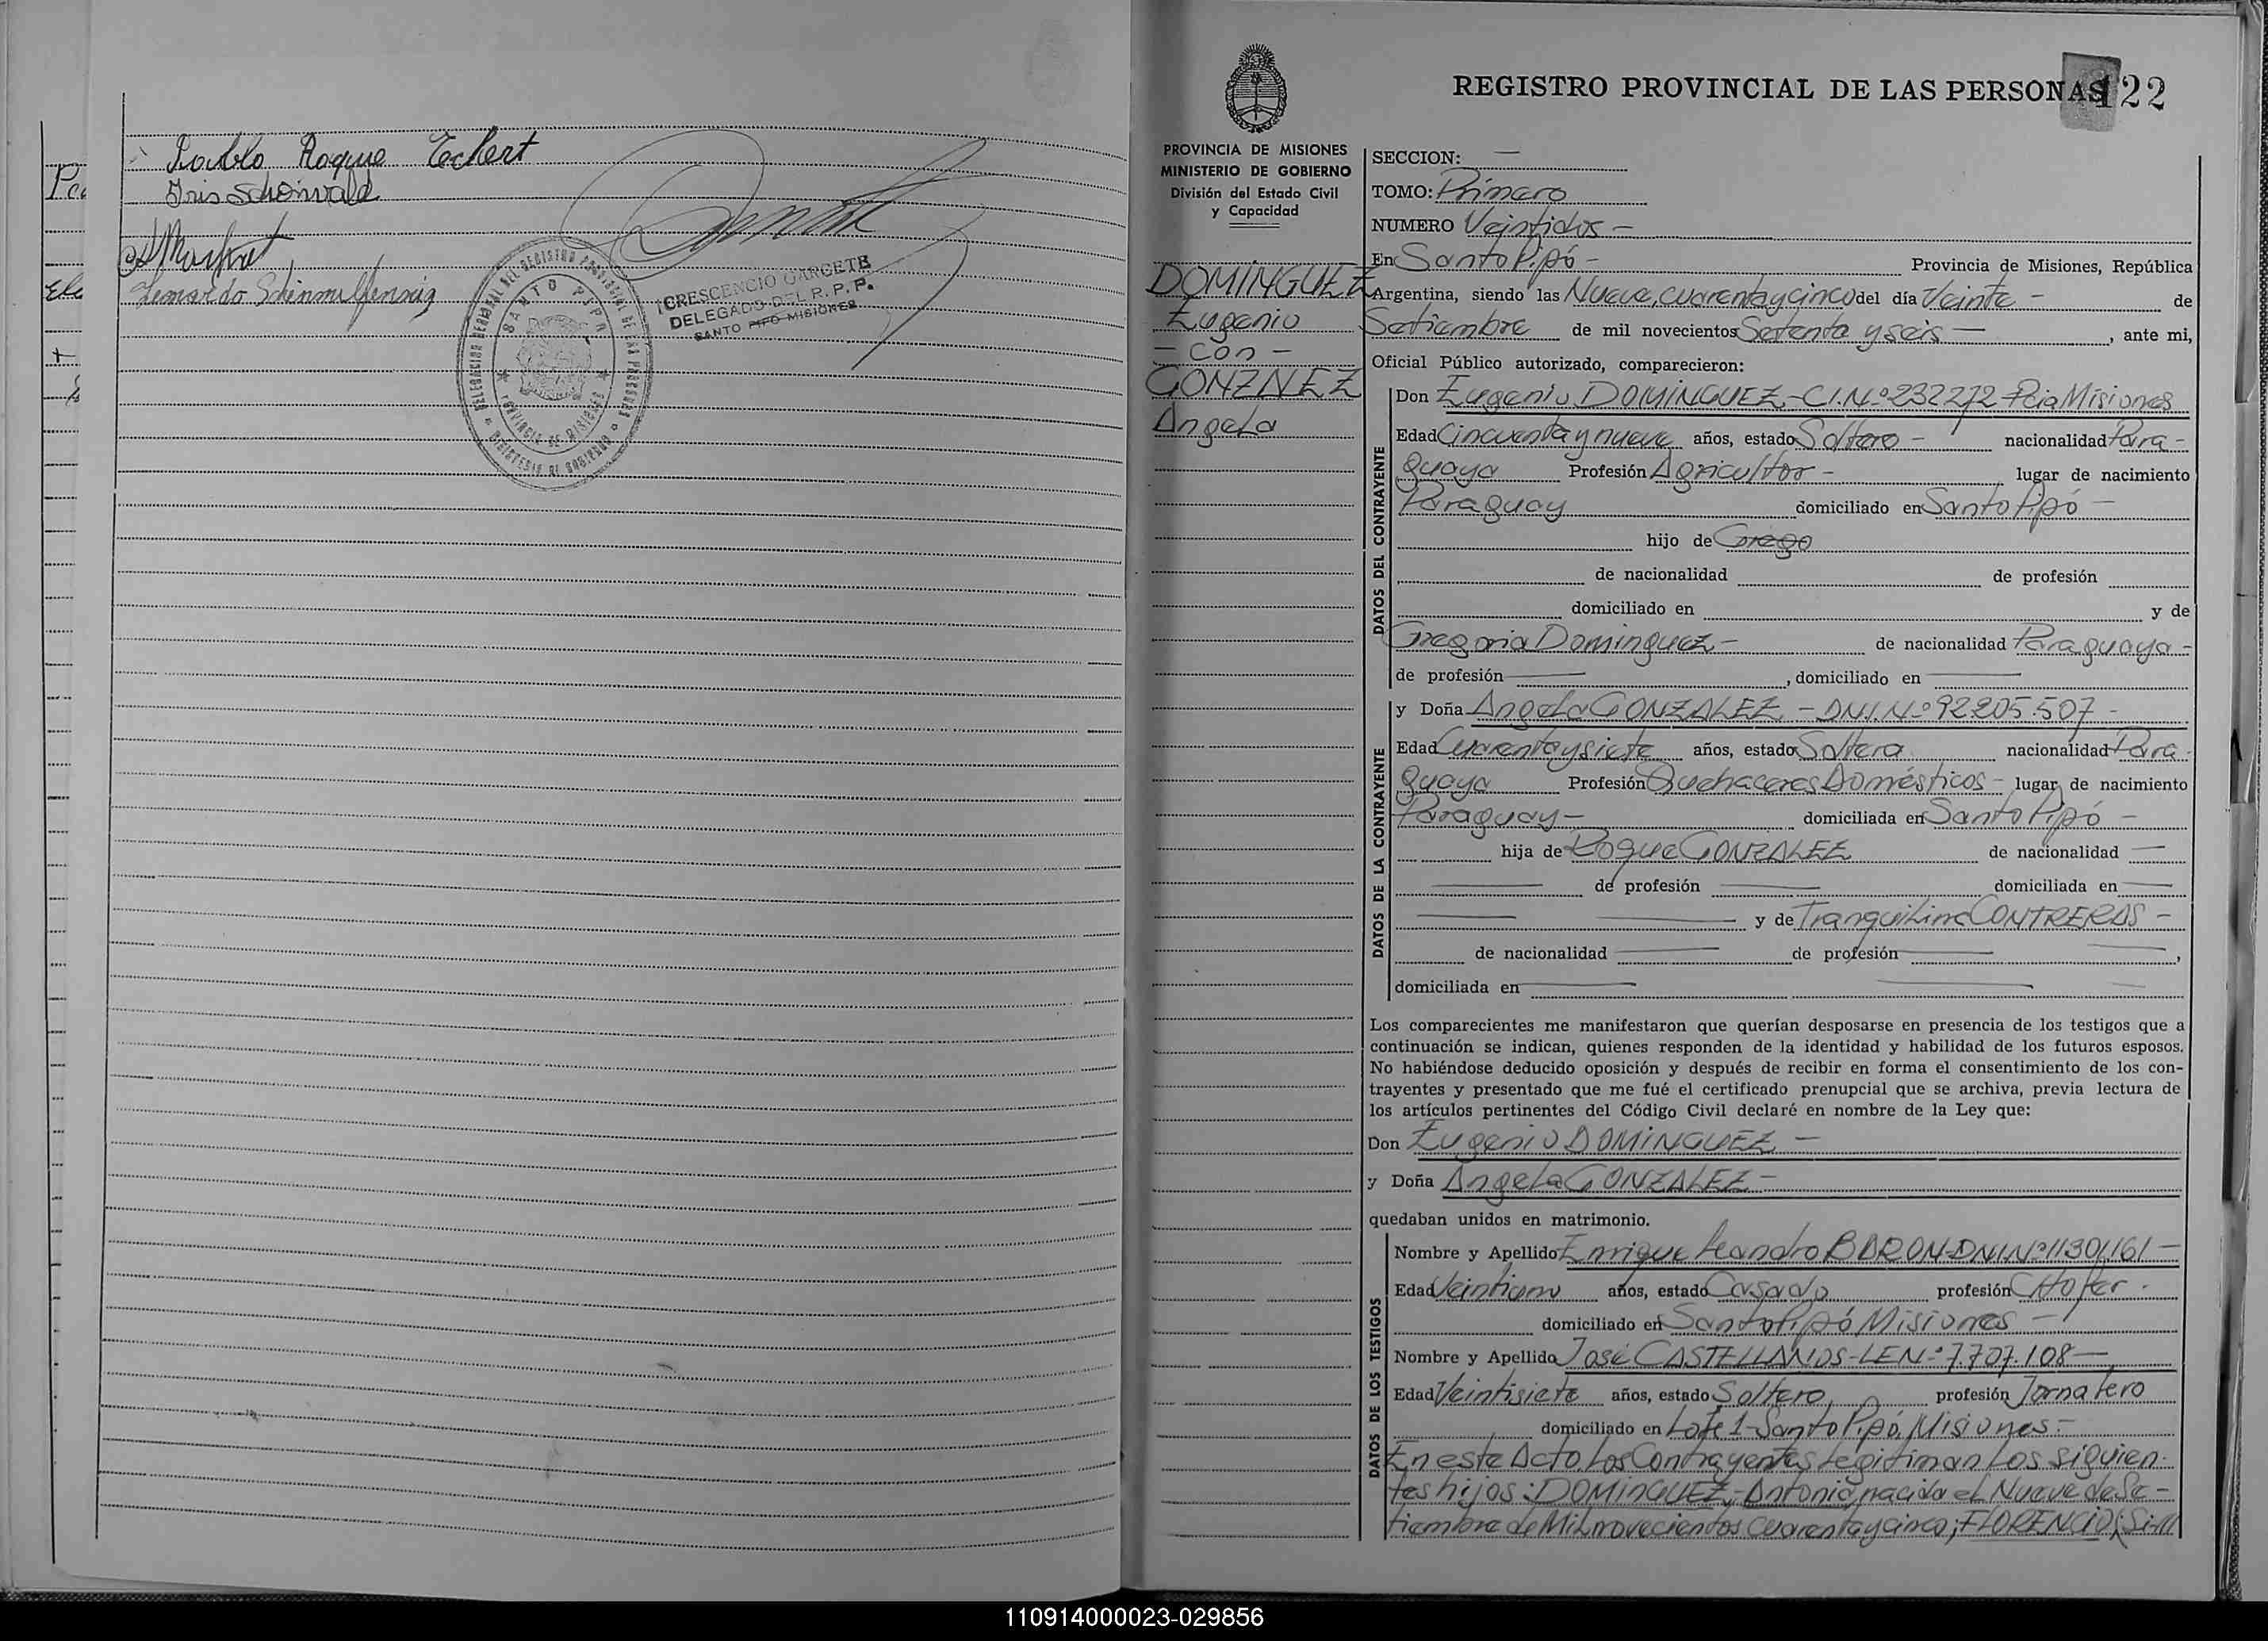 Pablo Roque Eckert
Iris Schönwald
CRESCENCIO GARCETE
DELEGADO DEL R. P. P.
SANTO PIPO MISIONES
DELEGACION GENERAL DEL REGISTRO PROVINCIAL DE LAS PERSONAS
SANTO PIPO
PROVINCIA DE MISIONES
MINISTERIO DE GOBIERNO
REGISTRO PROVINCIAL DE LAS PERSONAS
122
PROVINCIA DE MISIONES
MINISTERIO DE GOBIERNO
División del Estado Civil
y Capacidad
DOMINGUEZ
Eugenio
- con -
GONZALEZ
Angela
SECCION: —
TOMO: Primero
NUMERO Veintidos -
En Santo Pipó - Provincia de Misiones, República
Argentina, siendo las Nueve, cuarenta y cinco del día Veinte - de
Setiembre de mil novecientos Setenta y seis — , ante mi,
Oficial Público autorizado, comparecieron:
DATOS DEL CONTRAYENTE
Don Eugenio DOMINGUEZ - C.I. Nº 232272 Pcia Misiones
Edad Cincuenta y nueve años, estado Soltero - nacionalidad Para-
guaya Profesión Agricultor - lugar de nacimiento
Paraguay domiciliado en Santo Pipó -
hijo de Grego
de nacionalidad de profesión
domiciliado en y de
Gregoria Dominguez - de nacionalidad Paraguaya -
de profesión — , domiciliado en —
DATOS DE LA CONTRAYENTE
y Doña Angela GONZALEZ - DNI. Nº 92.205.507 -
Edad Cuarenta y siete años, estado Soltera nacionalidad Para-
guaya Profesión Quehaceres Domésticos - lugar de nacimiento
Paraguay - domiciliada en Santo Pipó -
hija de Roque GONZALEZ de nacionalidad —
— de profesión — domiciliada en —
— — y de Tranquilina CONTRERAS -
de nacionalidad — de profesión — — ,
domiciliada en — — —
Los comparecientes me manifestaron que querían desposarse en presencia de los testigos que a
continuación se indican, quienes responden de la identidad y habilidad de los futuros esposos.
No habiéndose deducido oposición y después de recibir en forma el consentimiento de los con-
trayentes y presentado que me fué el certificado prenupcial que se archiva, previa lectura de
los artículos pertinentes del Código Civil declaré en nombre de la Ley que:
Don Eugenio DOMINGUEZ -
y Doña Angela GONZALEZ -
quedaban unidos en matrimonio.
DATOS DE LOS TESTIGOS
Nombre y Apellido Enrique Leandro BARON - DNI Nº 11301161 -
Edad Veintiuno años, estado Casado profesión CHofer -
domiciliado en Santo Pipó Misiones -
Nombre y Apellido José CASTELLANOS - LE Nº 7.707.108 -
Edad Veintisiete años, estado Soltero profesión Jornalero
domiciliado en Lote 1 - Santo Pipó, Misiones -
En este Acto los Contrayentes legitiman los siguien-
tes hijos: DOMINGUEZ, Antonia nacida el Nueve de Se-
tiembre de Mil novecientos cuarenta y cinco; FLORENCIO;
110914000023-029856